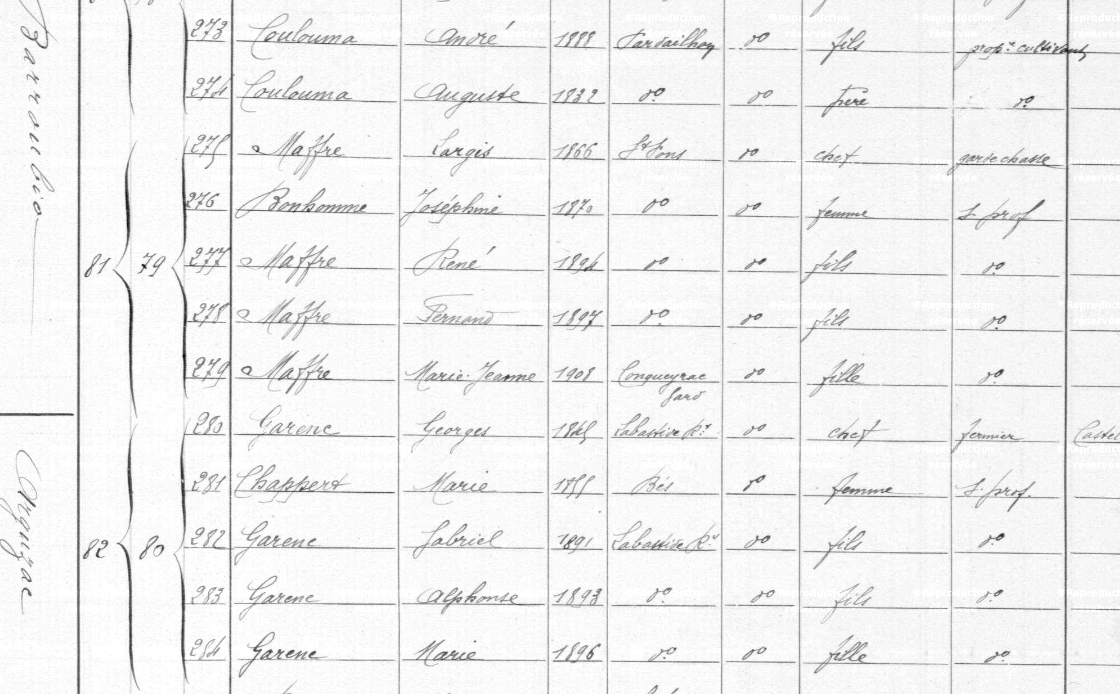 Barroubio
273 Coulouma André 1888 Pardailhan do fils propre cultivant
274 Coulouma Auguste 1832 do do frère do
275 Maffre Largis 1866 St Pons do chef garde chasse
276 Bonhomme Joséphine 1870 do do femme s. prof
81 79 277 Maffre René 1894 do do fils do
278 Maffre Fernand 1897 do do fils do
279 Maffre Marie-Jeanne 1908 Conqueyrac Gard do fille do
280 Garenc Georges 1845 Labastide Rre do chef fermier Castel
281 Chappert Marie 1855 Bés do femme s. prof.
Orguzac
82 80 282 Garenc Gabriel 1891 Labastide Rre do fils do
283 Garenc Alphonse 1893 do do fils do
284 Garenc Marie 1896 do do fille do